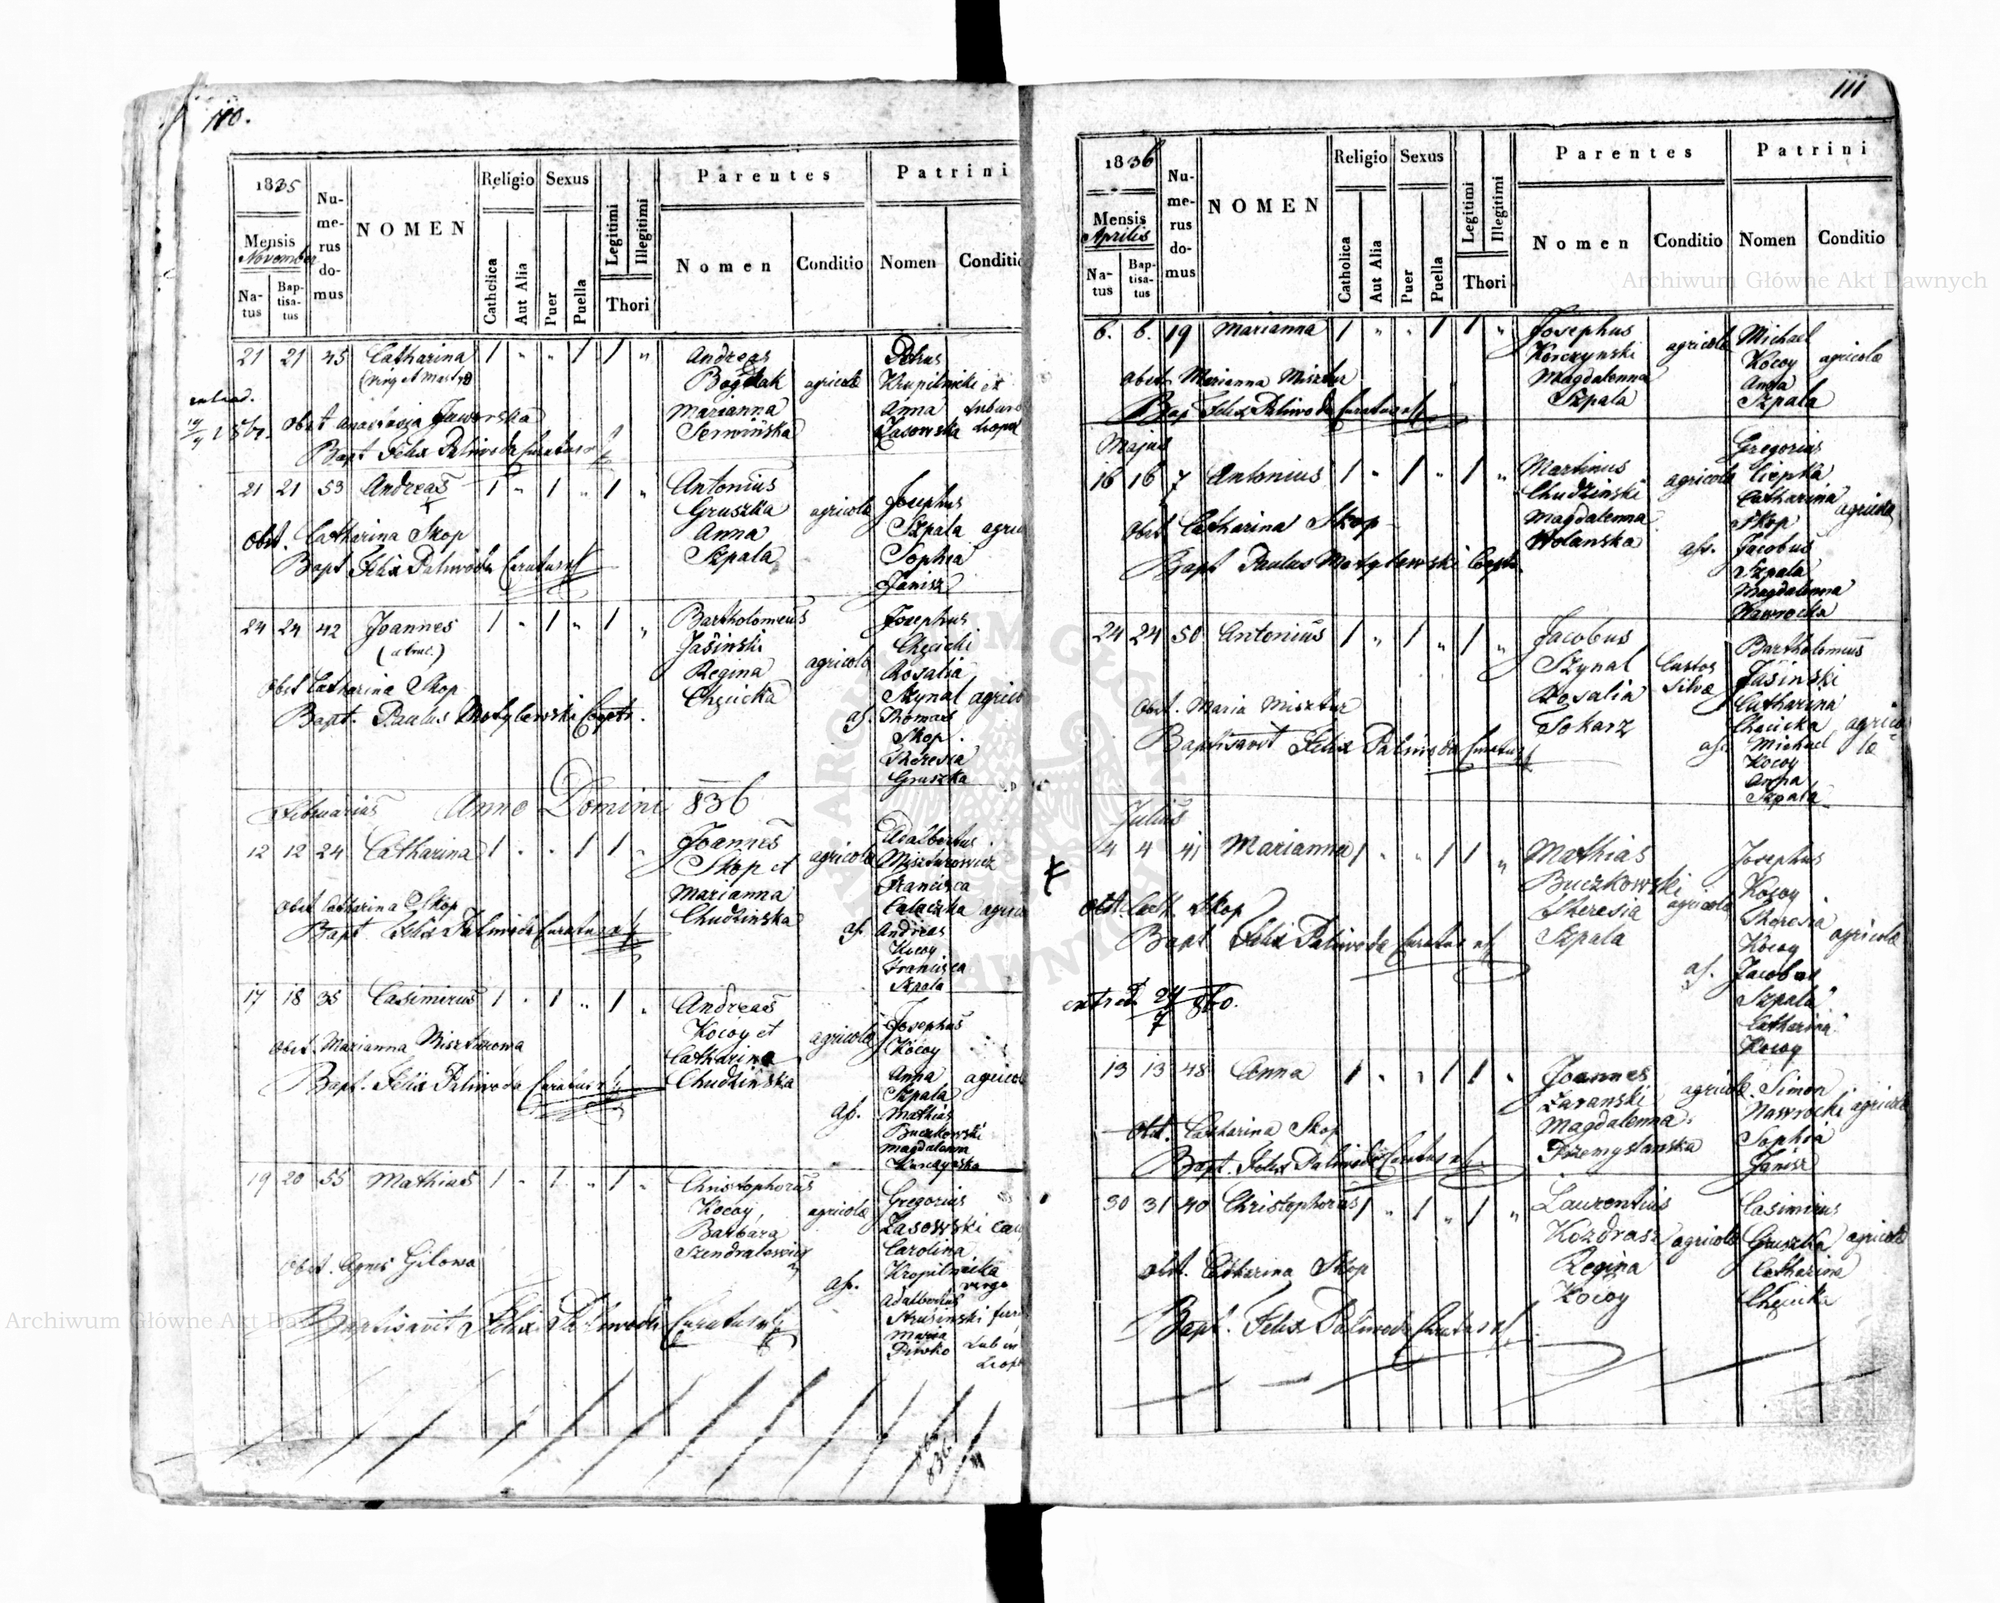 110.
1835
Mensis
November
Natus
Baptisatus
Numerus domus
NOMEN
Religio
Catholica
Aut Alia
Sexus
Puer
Puella
Legitimi
Illegitimi
Thori
Parentes
Nomen
Conditio
Patrini
Nomen
Conditio
21 21 45 Catharina 1 " " 1 1 "
(Virg et Mart)
Andreas
Bogdak agricolæ
Marianna
Serwińska
Petrus
Krupilnicki et
Anna
Lasowska
Obst Anastasia Jaworska
Bapt Felix Paliwoda Curatus
21 21 53 Andreas 1 " 1 " 1 "
Antonius
Gruszka agricolæ
Anna
Szpala
Josephus
Szpala
Sophia
Janisz
Obst. Catharina Skop
Bapt Felix Paliwoda Curatus
24 24 42 Joannes 1 " 1 " 1 "
Bartholomeus
Jasinski
Regina agricolæ
Chęcicka
Josephus
Chęcicki
Rosalia
Szynal
as. Thomas
Skop.
Theresia
Gruszka
Obst Catharina Skop
Bapt. Paulus Motylewski Coopt.
Februarius Anno Domini 836
12 12 24 Catharina 1 " " 1 1 "
Joannes
Skop et agricolæ
Marianna
Chudzinska
Adalbertus
Miszturowicz
Francisca
as. Andreas
Kocoy
Francisca
Szpala
Obst Catharina Skop
Bapt Felix Paliwoda Curatus
17 18 35 Casimirus 1 " 1 " 1 "
Andreas
Kocoy et agricolæ
Catharina
Chudzinska
Josephus
Kocoy
Anna
Szpala
as. Mathias
Buczkowski
Magdalena
Korczynska
Obst. Marianna Miszturowa
Bapt. Felix Paliwoda Curatus
19 20 55 Mathias 1 " 1 " 1 "
Christophorus
Kocoy, agricolæ
Barbara
Gregorius
Lasowski
Carolina
Kropilnicka
virgo
as. Adalbertus
Maria
Piwko
Obst. Agnes Gilowa
Baptisavit Felix Paliwoda Curatus
111
1836
Mensis
Aprilis
Natus
Baptisatus
Numerus domus
NOMEN
Religio
Catholica
Aut Alia
Sexus
Puer
Puella
Legitimi
Illegitimi
Thori
Parentes
Nomen
Conditio
Patrini
Nomen
Conditio
6. 6. 19 Marianna 1 " " 1 1 "
Josephus
Korczynski agricolæ
Magdalenna
Szpala
Michael
Kocoy agricolæ
Anna
Szpala
Obst Marianna Misztur
Bap Felix Paliwoda Curatus
Majus
16 16 7 Antonius 1 " 1 " 1 "
Martinus
Chudzinski agricolæ
Magdalenna
Wolanska
Gregorius
Ciepka
Catharina agricolæ
Skop
as. Jacobus
Szpala
Magdalenna
Nawrocka
Obst Catharina Skop
Bapt Paulus Motylewski Coopt.
24 24 50 Antonius 1 " 1 " 1 "
Jacobus
Szynal Custos
Rosalia Silvæ
Tokarz
Bartholomeus
Jasinski
Catharina
Chęcicka agricolæ
as. Michael
Kocoy
Anna
Szpala
Obst. Maria Misztur
Baptisavit Felix Paliwoda Curatus
Julius
4 4 41 Marianna 1 " " 1 1 "
Mathias
Buczkowski agricolæ
Theresia
Szpala
Josephus
Kocoy
Theresia agricolæ
Kocoy
as. Jacobus
Szpala
Catharina
Kocoy
Obst. Cath. Skop
Bapt Felix Paliwoda Curatus
extrad 24/7 860.
13 13 48 Anna 1 " " 1 1 "
Joannes
Zaranski agricolæ
Magdalenna
Przemyslanska
Simon
Nawrocki agricolæ
Sophia
Janisz
Obst. Catharina Skop
Bapt. Felix Paliwoda Curatus
30 31 40 Christophorus 1 " 1 " 1 "
Laurentius
Kozdrasz agricolæ
Regina
Kocoy
Casimirus
Gruszka agricolæ
Catharina
Chęcicka
Obst. Catharina Skop
Bapt. Felix Paliwoda Curatus
Archiwum Główne Akt Dawnych
Archiwum Główne Akt Dawnych